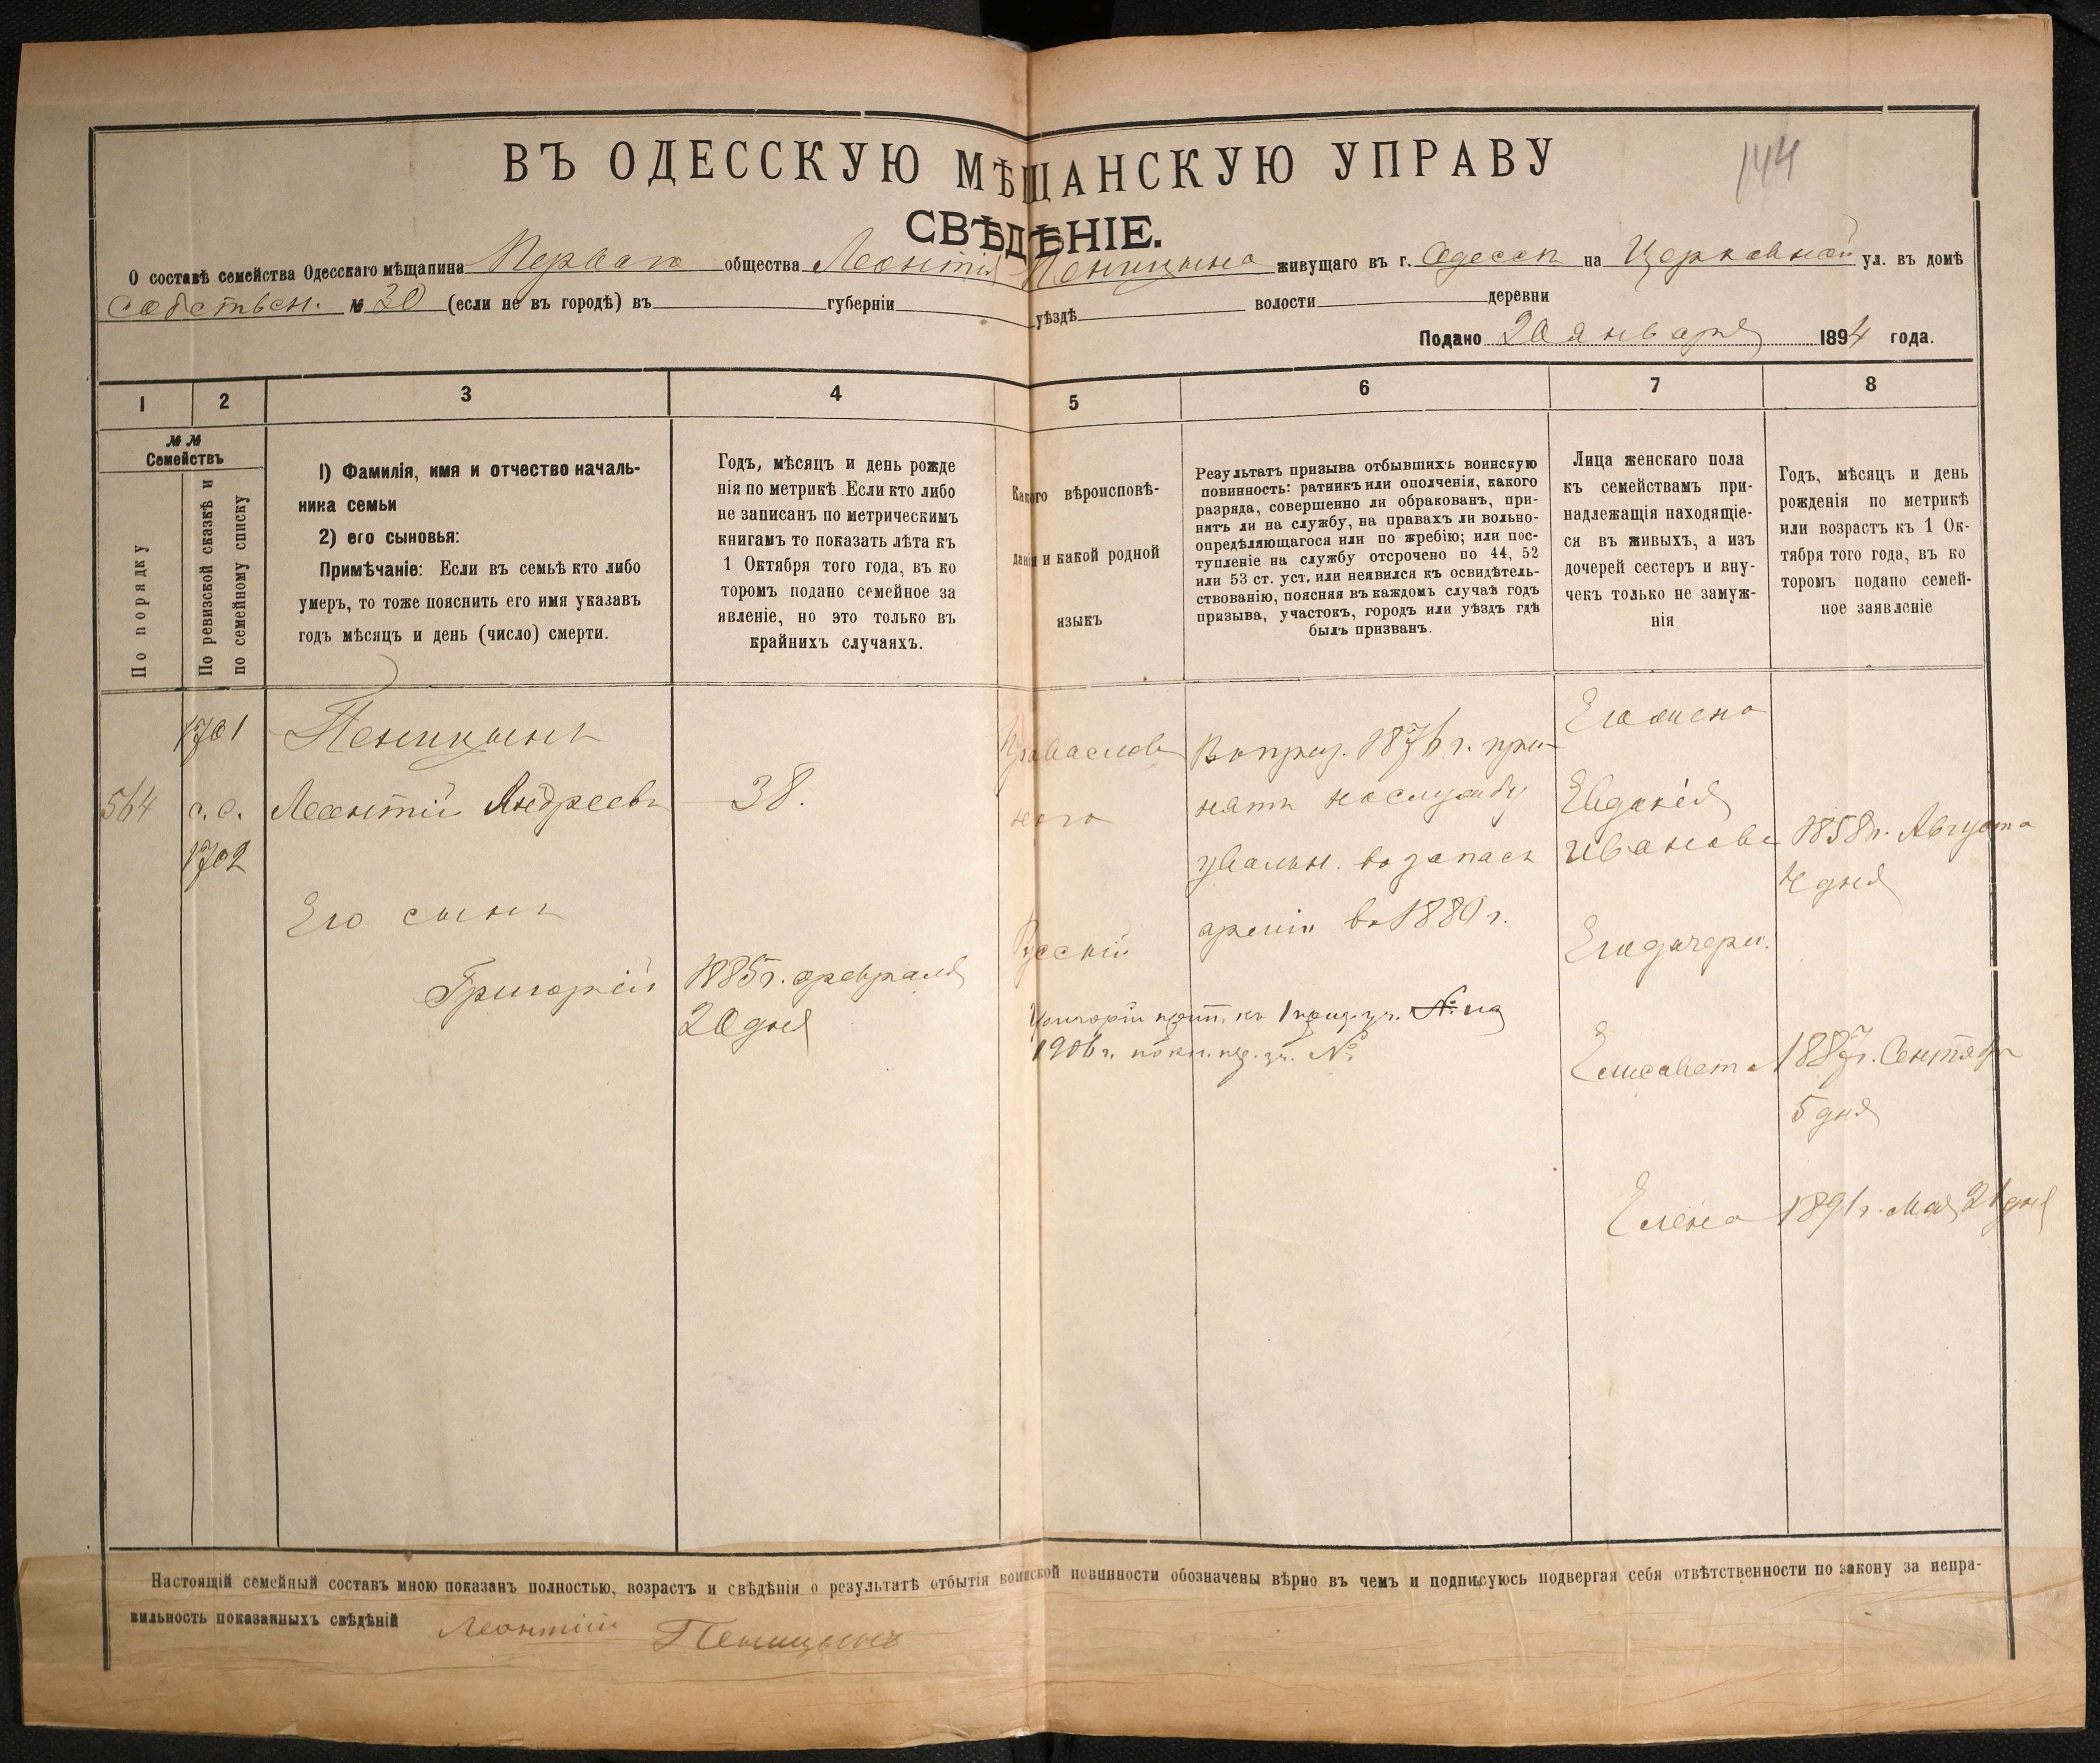 ВЪ ОДЕССКУЮ МѢЩАНСКУЮ УПРАВУ
144
СВѢДѢНІЕ.
О составѣ семейства Одесскаго мѣщанина Перваго общества Леонтія Пеницына живущаго въ г. Одессѣ на Церковной ул. въ домѣ
собствен. № 30 (если не въ городѣ) въ губерніи уѣздѣ волости деревни
Подано 20 января 1894 года.
1 2 3 4 5 6 7 8
№ №
Семействъ
По порядку
По ревизской сказкѣ и
по семейному списку
1) Фамилія, имя и отчество началь-
ника семьи
2) его сыновья:
Примѣчаніе: Если въ семьѣ кто либо
умеръ, то тоже пояснить его имя указавъ
годъ мѣсяцъ и день (число) смерти.
Годъ, мѣсяцъ и день рожде
нія по метрикѣ Если кто либо
не записанъ по метрическимъ
книгамъ то показать лѣта къ
1 Октября того года, въ ко
торомъ подано семейное за
явленіе, но это только въ
крайнихъ случаяхъ.
Какого вѣроисповѣ-
данія и какой родной
языкъ
Результатъ призыва отбывшихъ воинскую
повинность: ратникъ или ополченія, какого
разряда, совершенно ли обракованъ, при-
нятъ ли на службу, на правахъ ли вольно-
опредѣляющагося или по жребію; или пос-
тупленіе на службу отсрочено по 44, 52
или 53 ст. уст. или неявился къ освидѣтель-
ствованію, поясняя въ каждомъ случаѣ годъ
призыва, участокъ, городъ или уѣздъ гдѣ
былъ призванъ.
Лица женскаго пола
къ семействамъ при-
надлежащія находящіе-
ся въ живыхъ, а изъ
дочерей сестеръ и вну-
чекъ только не замуж-
нія
Годъ, мѣсяцъ и день
рожденія по метрикѣ
или возрастъ къ 1 Ок-
тября того года, въ ко
торомъ подано семей-
ное заявленіе
564
1701
с. с.
1702
Пеницынъ
Леонтій Андреевъ
Его сынъ
Григорій
38.
1885 г. февраля
20 дня
Православ
наго
Русскій
Въ приз. 1876 г. при-
нятъ на службу
увольн. въ запасъ
арміи въ 1880 г.
1906 г.
Его жена
Евдокія
Иванова
Его дочери.
Елисавета
Елена
1858 г. Августа
4 дня
1887 г. Сентября
5 дня
1891 г. Мая 21 дня
Настоящій семейный составъ мною показанъ полностью, возрастъ и свѣдѣнія о результатѣ отбытія воинской повинности обозначены вѣрно въ чемъ и подписуюсь подвергая себя отвѣтственности по закону за непра-
вильность показанныхъ свѣдѣній Леонтій Пеницынъ